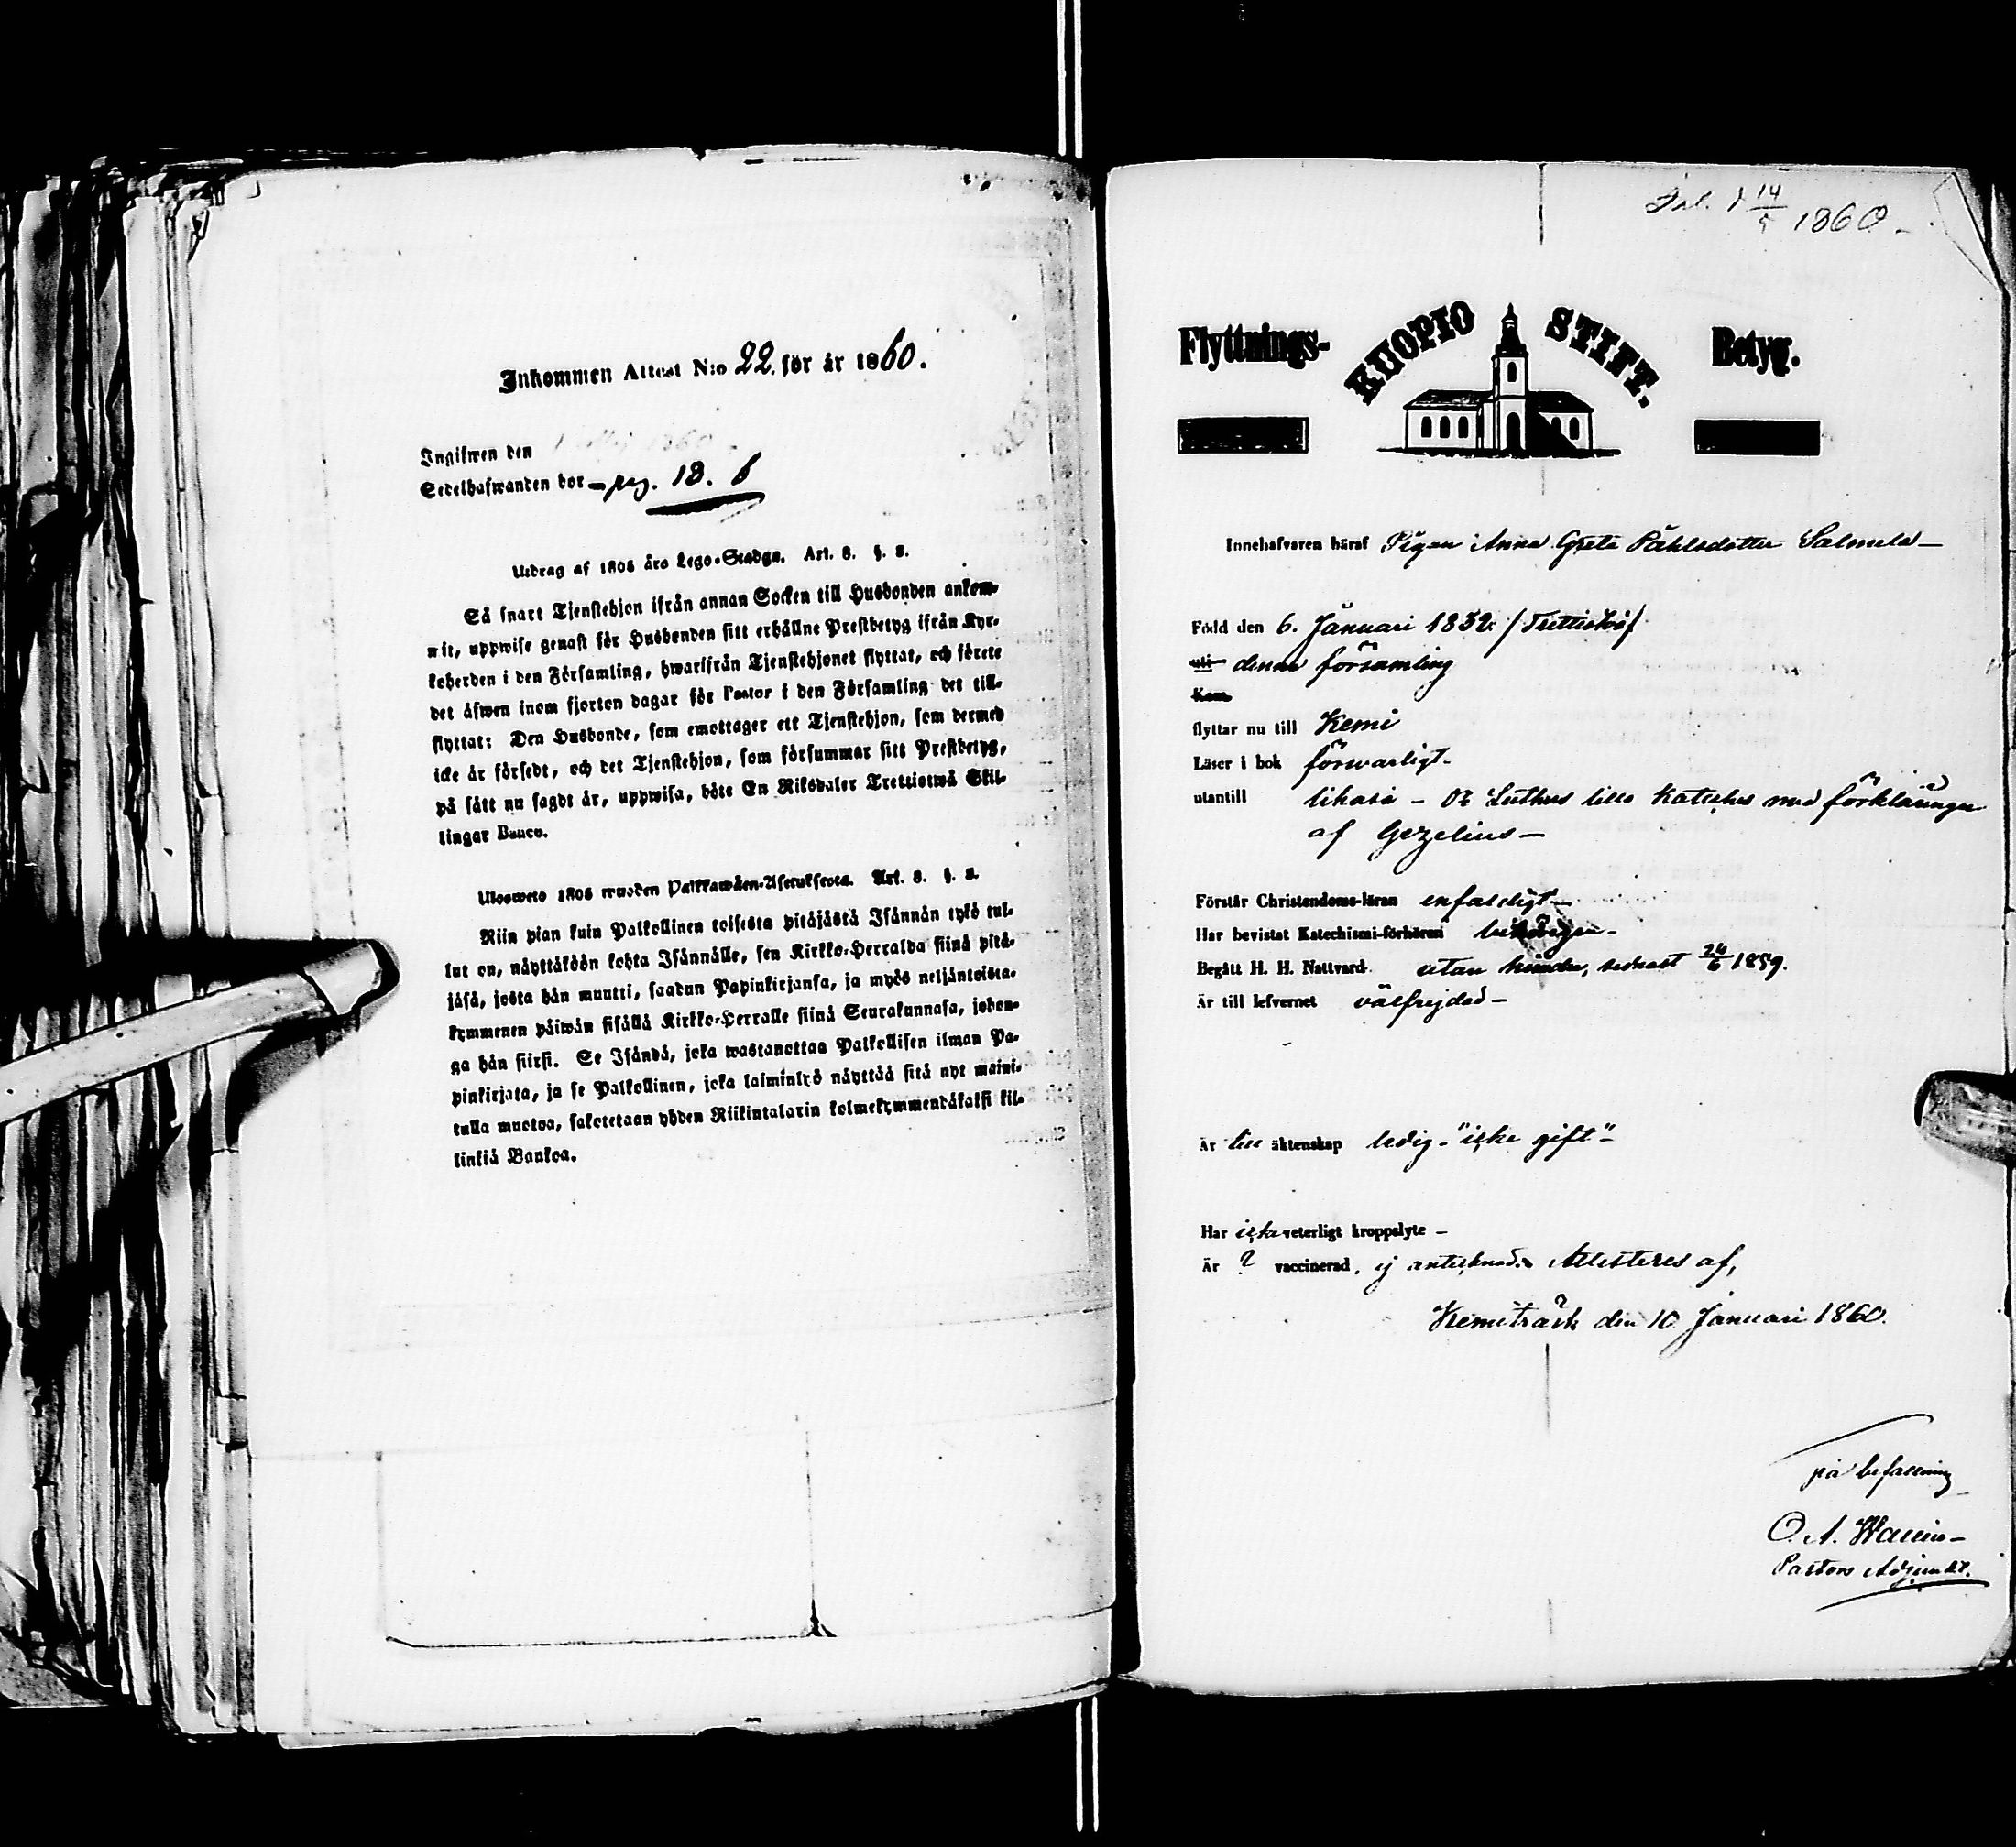 Inkommen Attest N:o 22. för år 1860.
Ingifwen den
Sedelhafwanden bor – pag. 18. b
Utdrag af 1805 års Lego-Stadga. Art. 8. §. 2.
Så snart Tjenstehjon ifrån annan Socken till Husbonden ankom-
mit, uppwise genast för Husbonden sitt erhållne Prestbetyg ifrån Kyr-
koherden i den Församling, hwarifrån Tjenstehjonet flyttat, och förete
det äfwen inom fjorton dagar för Pastor i den Församling det till-
flyttat: Den Husbonde, som emottager ett Tjenstehjon, som dermed
icke är försedt, och det Tjenstehjon, som försummar sitt Prestbetyg,
på sätt nu sagdt är, uppwisa, böte En Riksdaler Trettiotwå Skil-
lingar Banco.
Ulosweto 1805 wuoden Palkkawäen-Asetuksesta. Art. 8. §. 2.
Niin pian kuin Palkollinen toisesta pitäjästä Isännän tykö tul-
lut on, näyttäköön kohta Isännälle, sen Kirkko-Herralda siinä pitä-
jäsä, josta hän muutti, saadun Papinkirjansa, ja myös neljäntoista-
kymmenen päiwän sisällä Kirkko-Herralle siinä Seurakunnasa, johon-
ga hän siirsi. Se Isändä, joka wastanottaa Palkollisen ilman Pa-
pinkirjata, ja se Palkollinen, joka laiminlyö näyttää sitä nyt maini-
tulla muotoa, sakotetaan yhden Riikintalarin kolmekymmendäkaksi kil-
linkiä Bankoa.
14/5 1860 –
Flyttnings- KUOPIO STIFT. Betyg.
Innehafvaren häraf Pigan Anna Greta Påhlsdotter Salmela –
Född den 6. Januari 1832. /Trettiotvå/
uti denna församling
Kom
flyttar nu till Kemi
Läser i bok försvarligt –
utantill likaså – D:r Luthers lilla Kateches med förklaringen
af Gezelius –
Förstår Christendoms-läran enfaldigt –
Har bevistat Katechismi-förhören behörigen –
Begått H. H. Nattvard utan hinder, sednast 24/6 1859.
Är till lefvernet välfrejdad –
Är till äktenskap ledig – "icke gift" –
Har icke veterligt kroppslyte –
Är ? vaccinerad, ej antecknad. Attesteres af,
Kemiträsk den 10 Januari 1860.
på befallning
O. A. Wallin –
Pastors Adjunkt.